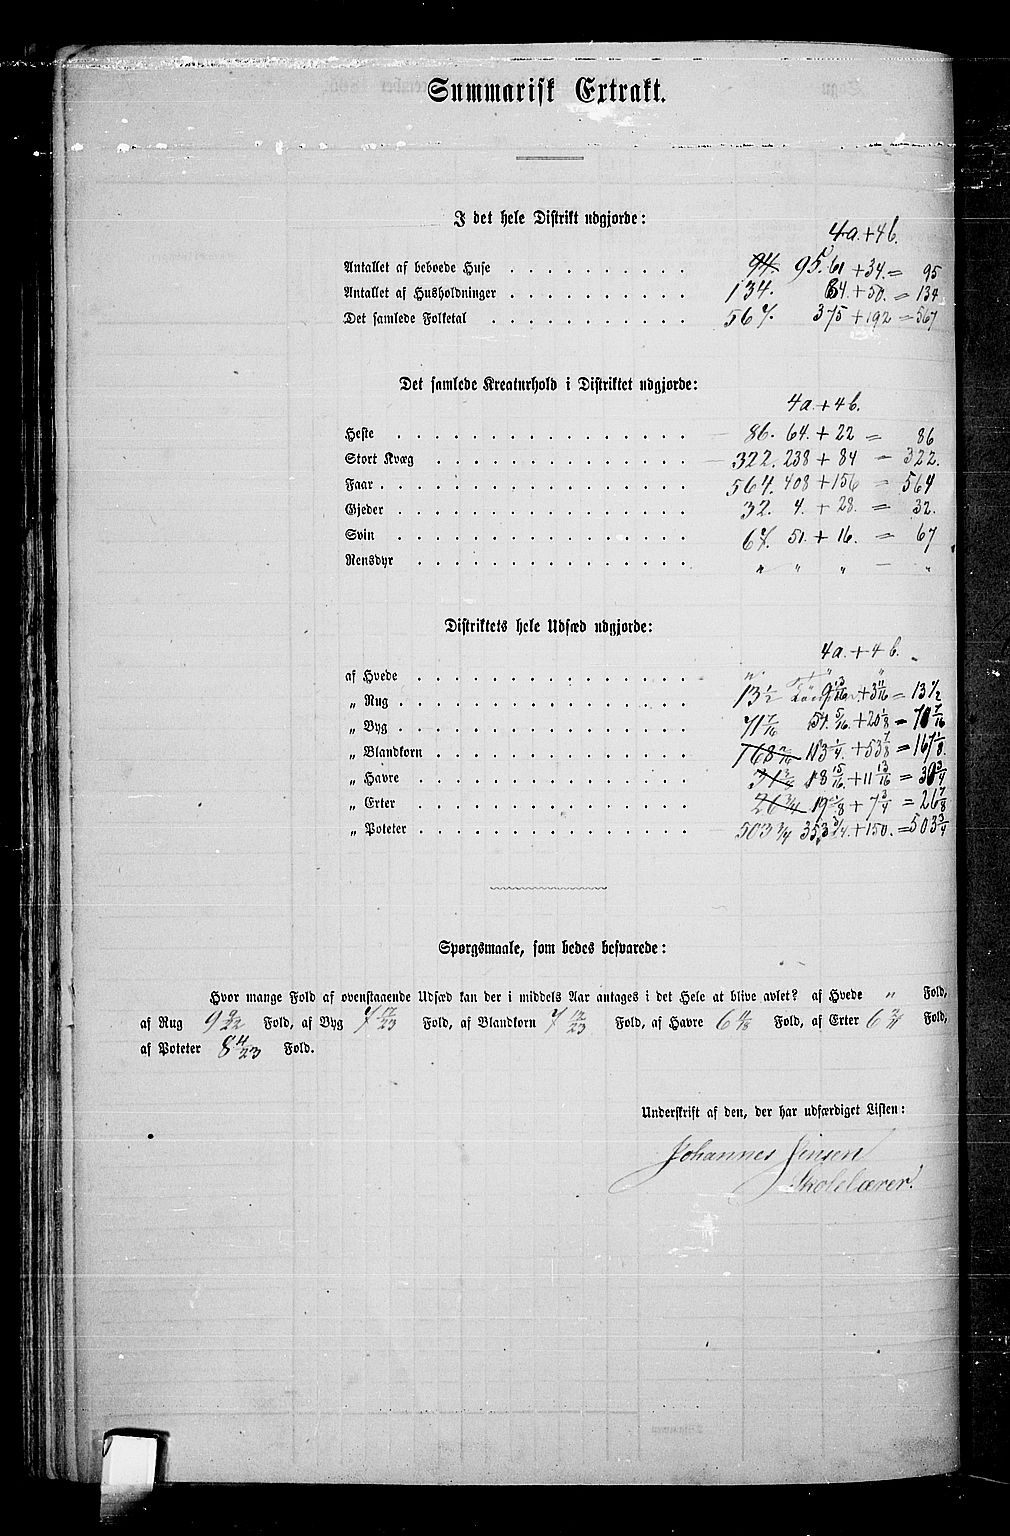 Summarisk Extrakt.
I det hele Distrikt udgjorde:
4a. + 4b.
Antallet af beboede Huse . . . . . . . . . . 94 95. 61 + 34. = 95
Antallet af Husholdninger . . . . . . . . . . 134. 84. + 50. = 134
Det samlede Folketal . . . . . . . . . . . 567. 375 + 192 = 567
Det samlede Kreaturhold i Distriktet udgjorde:
4a. + 4b.
Heste . . . . . . . . . . . . . . . . 86. 64. + 22 = 86
Stort Kvæg . . . . . . . . . . . . . . 322. 238 + 84 = 322.
Faar . . . . . . . . . . . . . . . . . 564. 408 + 156 = 564
Gjeder . . . . . . . . . . . . . . . . 32. 4. + 28. = 32.
Svin . . . . . . . . . . . . . . . . 67. 51. + 16. = 67
Rensdyr . . . . . . . . . . . . . . . " " " — "
Distriktets hele Udsæd udgjorde:
4a. + 4b.
af Hvede . . . . . . . . . . . . . . . " " "
„ Rug . . . . . . . . . . . . . . . . 13 1/2 9 13/16 + 3 11/16 = 13 1/2
„ Byg . . . . . . . . . . . . . . . . 71 7/16 51 5/16 + 20 1/8 = 71 7/16
„ Blandkorn . . . . . . . . . . . . . . 113 1/4. + 53 7/8 = 167 1/8.
„ Havre . . . . . . . . . . . . . . . 31 3/4 18 15/16. + 11 13/16 = 30 3/4
„ Erter . . . . . . . . . . . . . . . 26 3/4 19 1/8 + 7 3/4 = 26 7/8
„ Poteter . . . . . . . . . . . . . . 503 3/4 353 3/4. + 150. = 503 3/4
Spørgsmaale, som bedes besvarede:
Hvor mange Fold af ovenstaaende Udsæd kan der i middels Aar antages i det Hele at blive avlet? af Hvede " Fold,
af Rug 9 9/22 Fold, af Byg 7 12/23 Fold, af Blandkorn 7 12/23 Fold, af Havre 6 11/18 Fold, af Erter 6 2/11 Fold,
af Poteter 8 11/23 Fold.
Underskrift af den, der har udfærdiget Listen:
Johannes Jensen
Skolelærer.